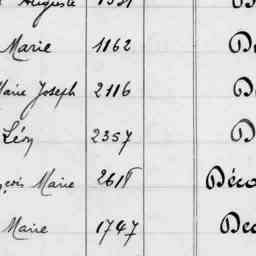 Auguste
Marie 1162 D
Marie Joseph 2116 D
Léon 2357 D
çois Marie Déco
Marie 1747 Dec